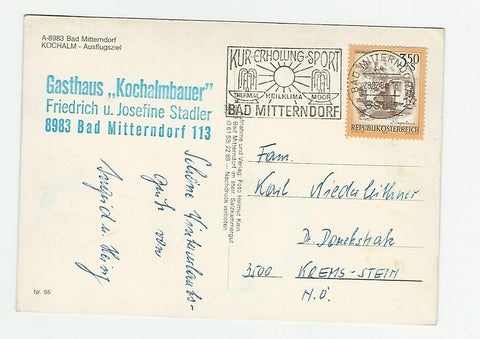 A-8983 Bad Mitterndorf
KOCHALM - Ausflugsziel
Gasthaus „Kochalmbauer"
Friedrich u. Josefine Stadler
8983 Bad Mitterndorf 113
Schöne Winterurlaubs-
grüße von
Ingrid u. Heinz
Nr. 55
Aufnahme und Verlag: Foto Helmut Klein
Bad Mitterndorf im steir. Salzkammergut
Nachdruck verboten
KUR·ERHOLUNG·SPORT
THERMAL HEILKLIMA MOOR
BAD MITTERNDORF
BAD MITTERNDORF
3.50
REPUBLIK ÖSTERREICH
Fam.
Karl Niederleithner
Dr. Dorrekstr.
3500 KREMS-STEIN
N.Ö.